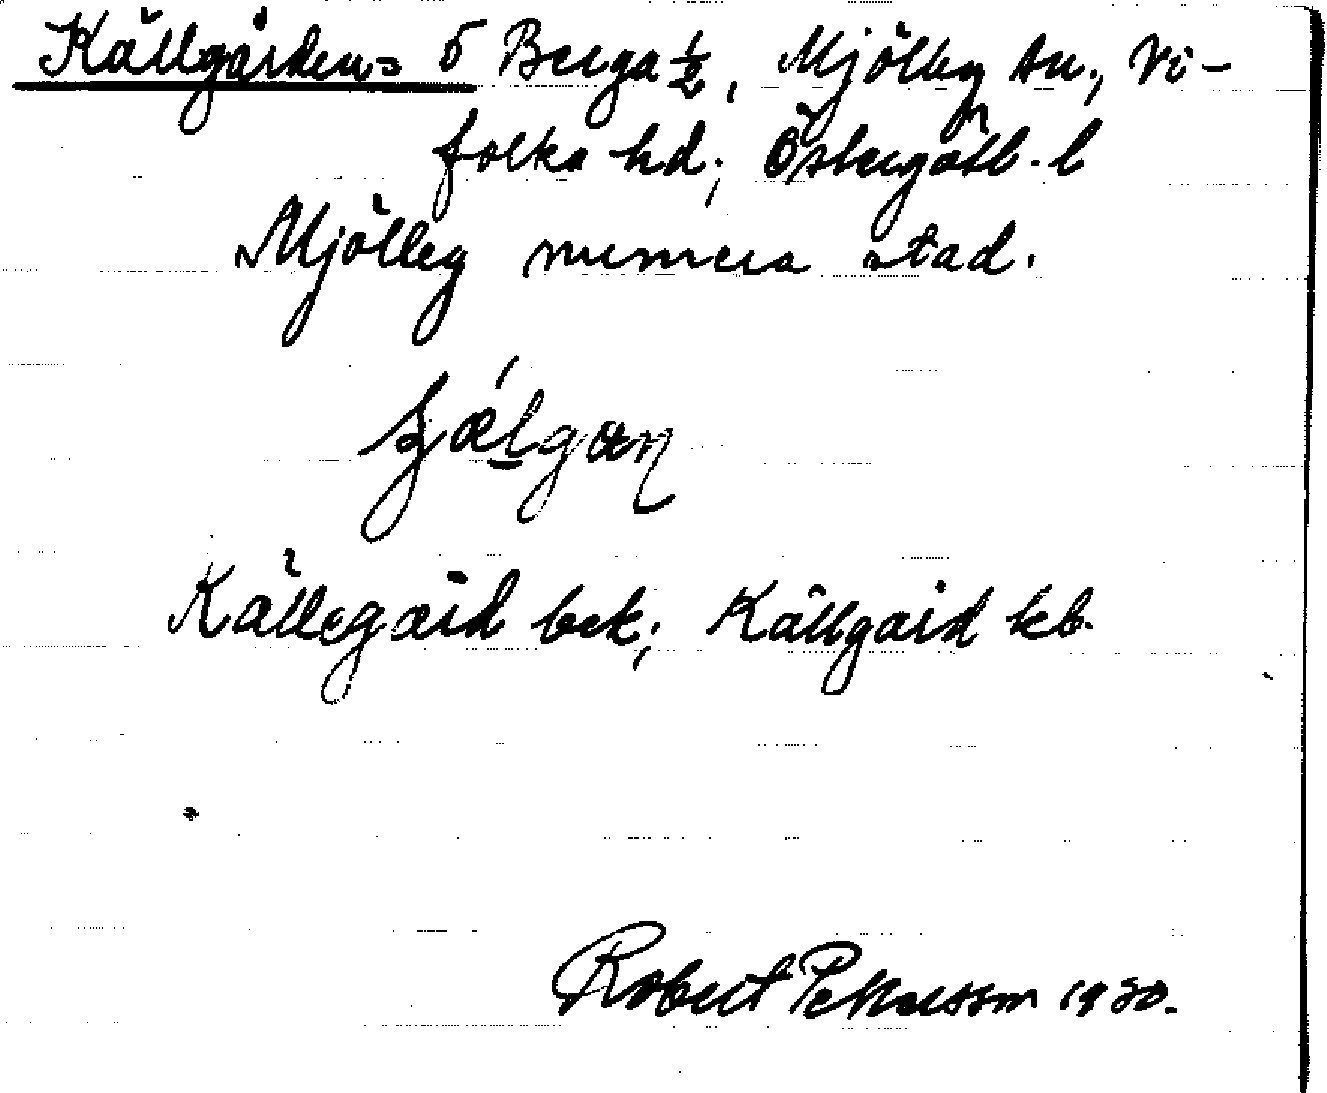 Källgården = 5 Berga ½, Mjölby sn., Vi-
folka hd; Östergötl. l
Mjölby numera stad.
Källegård bek; Källgård kb.
Robert Pettersson 1930.